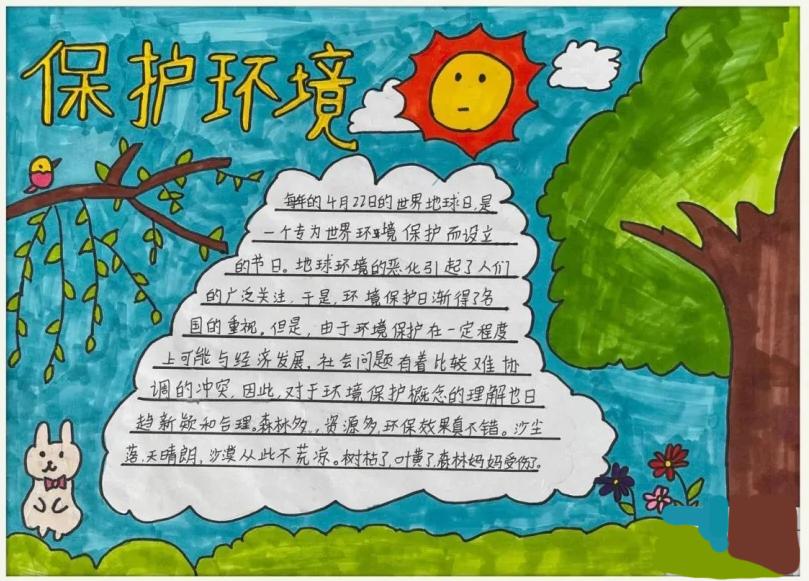 保护环境
每年的4月22日的世界地球日,是
一个专为世界环境保护而设立
的节日。地球环境的恶化引起了人们
的广泛关注,于是,环境保护日渐得了各
国的重视。但是,由于环境保护在一定程度
上可能与经济发展,社会问题有着比较难协
调的冲突,因此,对于环境保护概念的理解也日
趋新颖和合理。森林多,,资源多,环保效果真不错。沙尘
落,天晴朗,沙漠从此不荒凉。树枯了,叶黄了,森林妈妈受伤了。